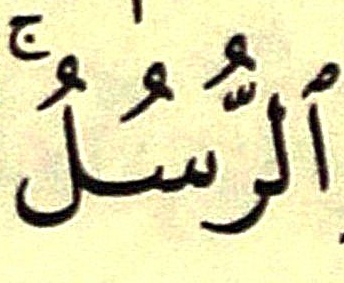 ٱلرُّسُلُ ۚ